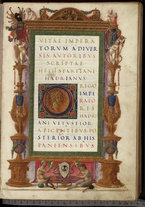 VITAE IMPERA
TORVM A DIVER
SIS AVTORIBVS
SCRIPTAE
HELII SPARTIANI
HADRIANVS
RIGO
IMPE
RATO
RIS
HADRI
ANI VETVSTIOR
A PICENTIBVS PO
STERIOR AB HIS
PANIENSIBVS